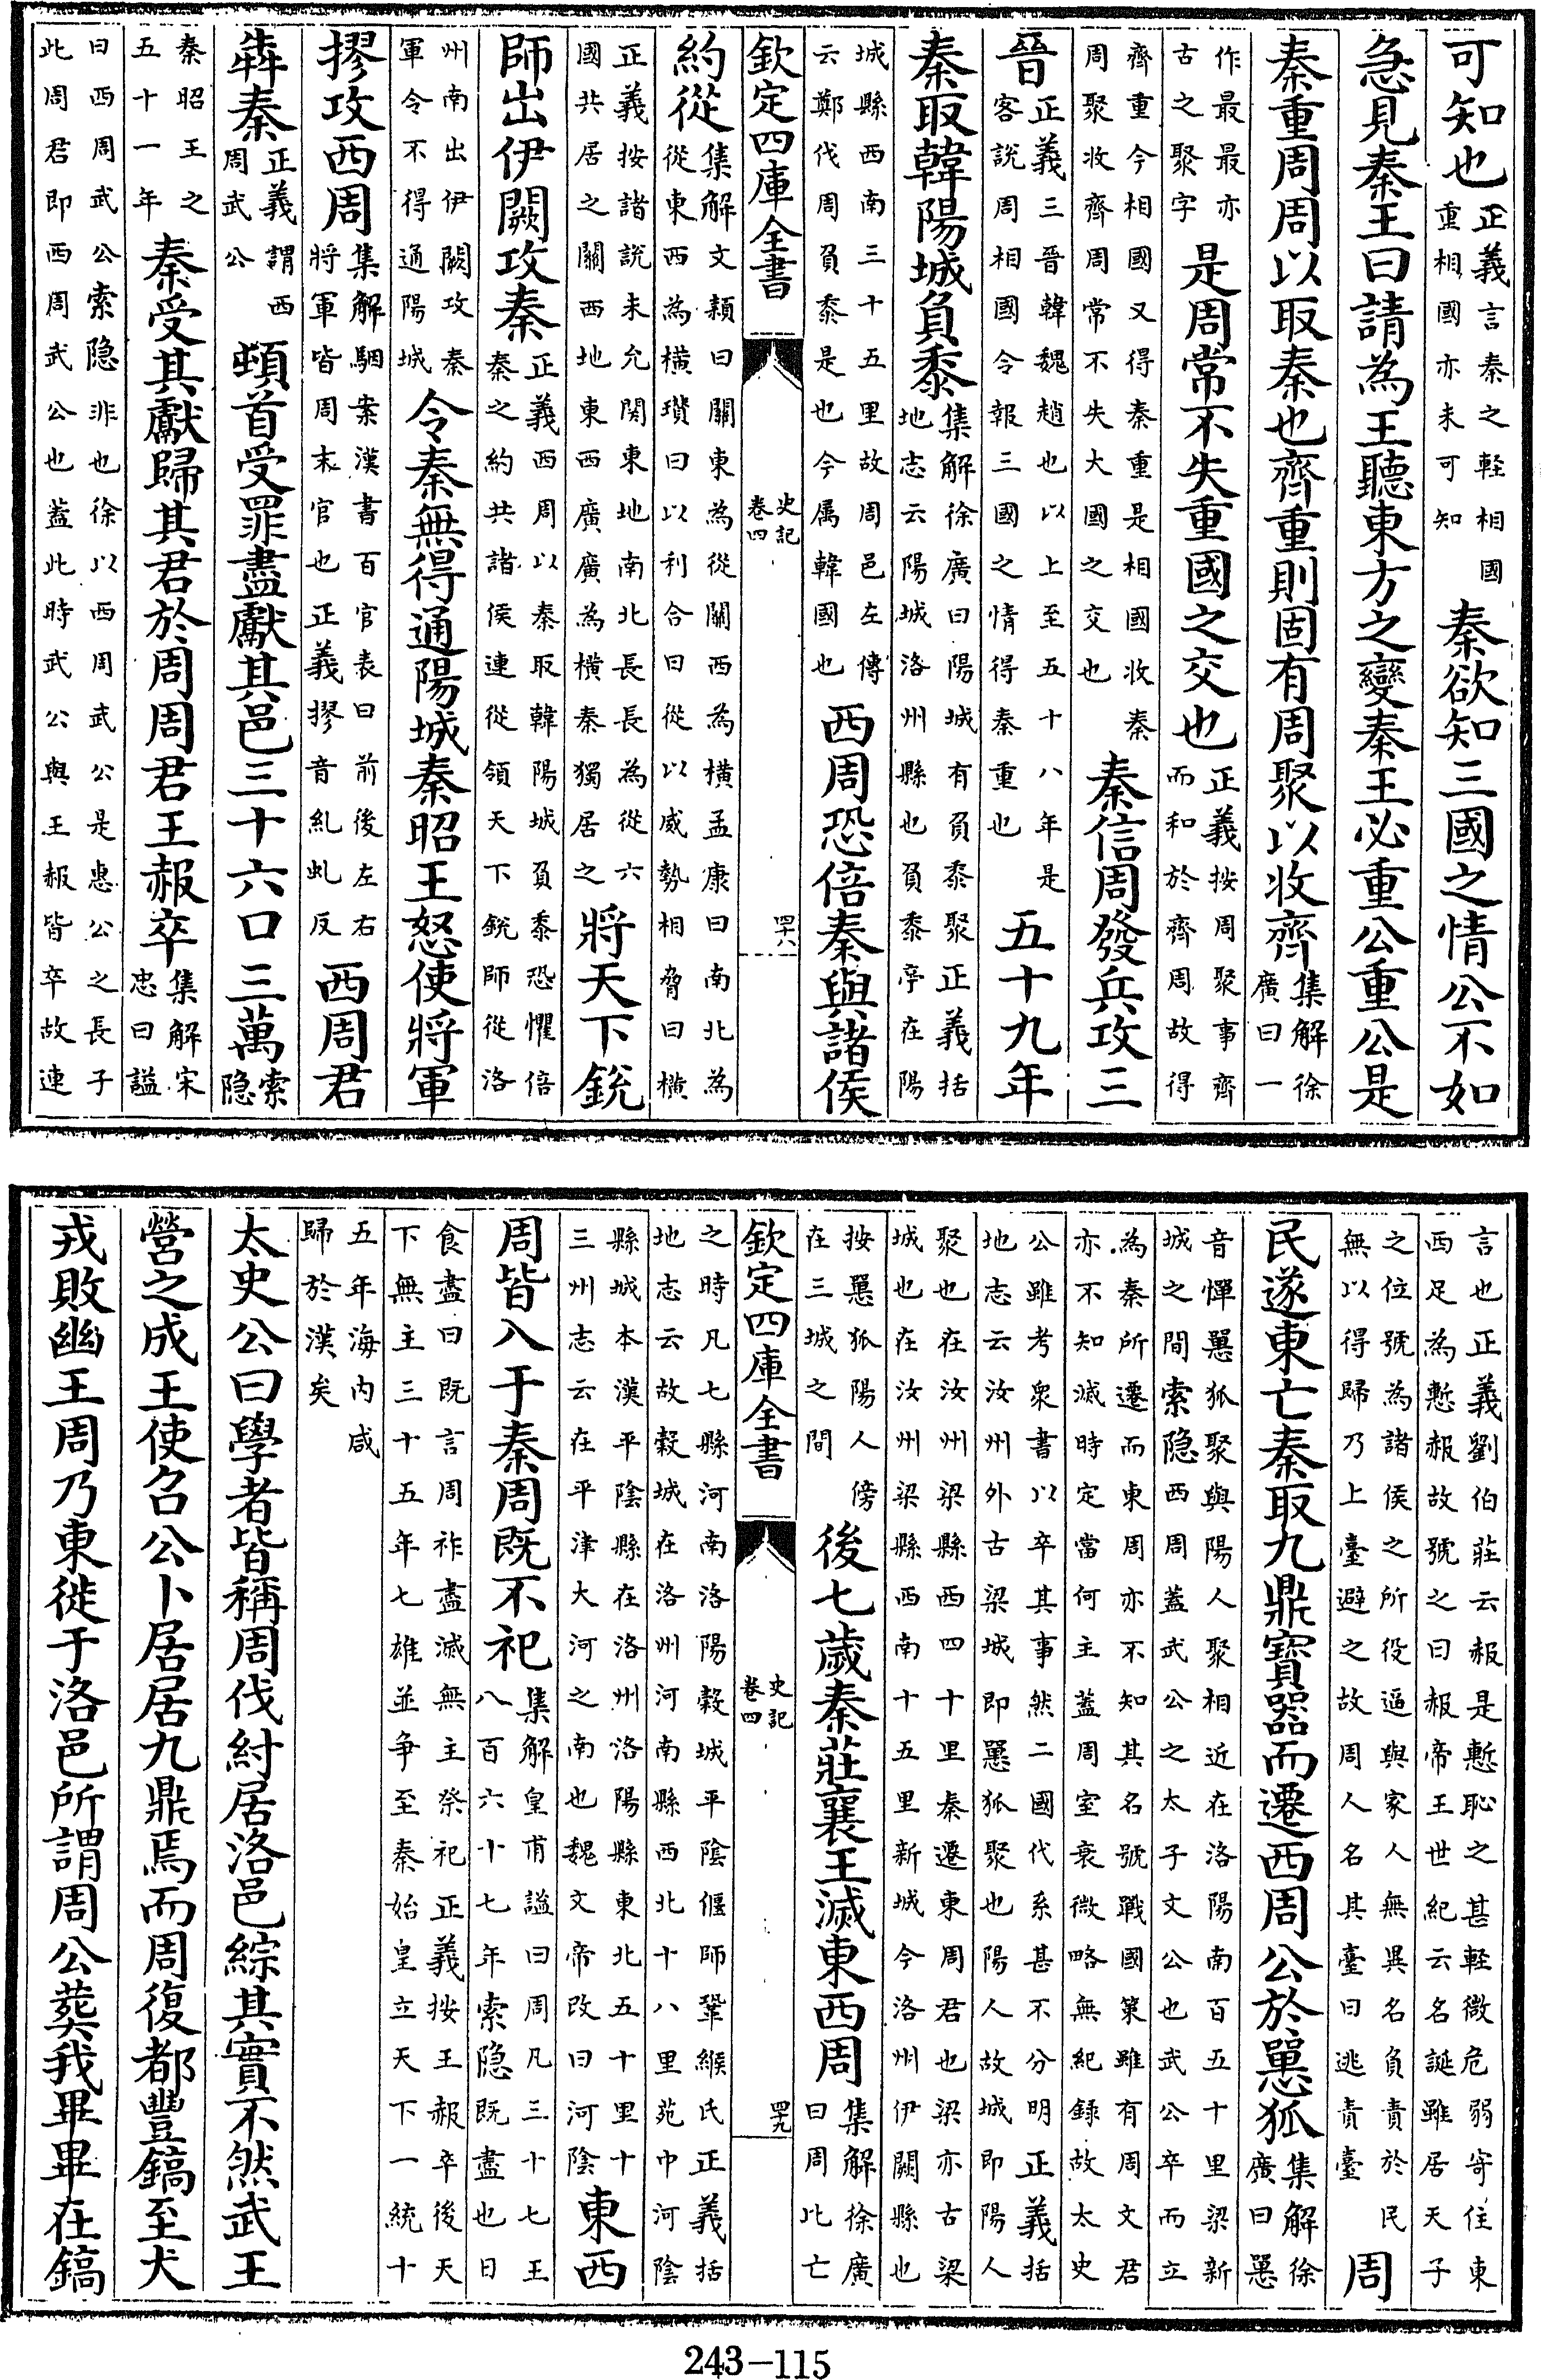 可知也正義言秦之輕相國重相國亦未可知秦欲知三國之情公不如
急見秦王曰請為王聽東方之變秦王必重公重公是
秦重周周以取秦也齊重則固有周聚以收齊集解徐廣曰一
作最最亦古之聚字是周常不失重國之交也正義按周聚事齊而和於齊周故得
齊重今相國又得秦重是相國收秦周聚收齊周常不失大國之交也秦信周發兵攻三
晉正義三晉韓魏趙也以上至五十八年是客說周相國令報三國之情得秦重也五十九年
秦取韓陽城負黍集解徐廣曰陽城有負黍聚正義括地志云陽城洛州縣也負黍亭在陽
城縣西南三十五里故周邑左傳云鄭伐周負黍是也今屬韓國也西周恐倍秦與諸侯
欽定四庫全書
史記
卷四
四十八
約從集解文穎曰關東為從關西為橫孟康曰南北為從東西為橫瓚曰以利合曰從以威勢相脅曰橫
正義按諸說未允関東地南北長長為從六國共居之關西地東西廣廣為橫秦獨居之將天下銳
師出伊闕攻秦正義西周以秦取韓陽城負黍恐懼倍秦之約共諸侯連從領天下銳師從洛
州南出伊闕攻秦軍令不得通陽城令秦無得通陽城秦昭王怒使將軍
摎攻西周集解駰案漢書百官表曰前後左右將軍皆周末官也正義摎音紏虬反西周君
犇秦正義謂西周武公頓首受罪盡獻其邑三十六口三萬索隐
秦昭王之五十一年秦受其獻歸其君於周周君王赧卒集解宋忠曰謚
曰西周武公索隐非也徐以西周武公是惠公之長子此周君即西周武公也葢此時武公與王赧皆卒故連
言也正義劉伯莊云赧是慙恥之甚輕微危弱寄住東西足為慙赧故號之曰赧帝王世紀云名誕雖居天子
之位號為諸侯之所役逼與家人無異名負責於民無以得歸乃上臺避之故周人名其臺曰逃責臺周
民遂東亡秦取九鼎寶器而遷西周公於㥽狐集解徐廣曰㥽
音憚㥽狐聚與陽人聚相近在洛陽南百五十里梁新城之間索隐西周蓋武公之太子文公也武公卒而立
為秦所遷而東周亦不知其名號戰國策雖有周文君亦不知滅時定當何主蓋周室衰微略無紀錄故太史
公雖考衆書以卒其事然二國代系甚不分明正義括地志云汝州外古梁城即㥽狐聚也陽人故城即陽人
聚也在汝州梁縣西四十里秦遷東周君也梁亦古梁城也在汝州梁縣西南十五里新城今洛州伊闕縣也
按㥽狐陽人傍在三城之間後七歲秦莊襄王滅東西周集解徐廣曰周比亡
欽定四庫全書
史記
卷四
四十九
之時凡七縣河南洛陽穀城平陰偃師鞏緱氏正義括地志云故穀城在洛州河南縣西北十八里苑中河陰
縣城本漢平陰縣在洛州洛陽縣東北五十里十三州志云在平津大河之南也魏文帝改曰河陰東西
周皆入于秦周既不祀集解皇甫謐曰周凡三十七王八百六十七年索隐既盡也日
食盡曰既言周祚盡滅無主祭祀正義按王赧卒後天下無主三十五年七雄並爭至秦始皇立天下一統十
五年海内咸歸於漢矣
太史公曰學者皆稱周伐紂居洛邑綜其實不然武王
營之成王使召公卜居居九鼎焉而周復都豐鎬至犬
戎敗幽王周乃東徙于洛邑所謂周公葬我畢畢在鎬
243-115